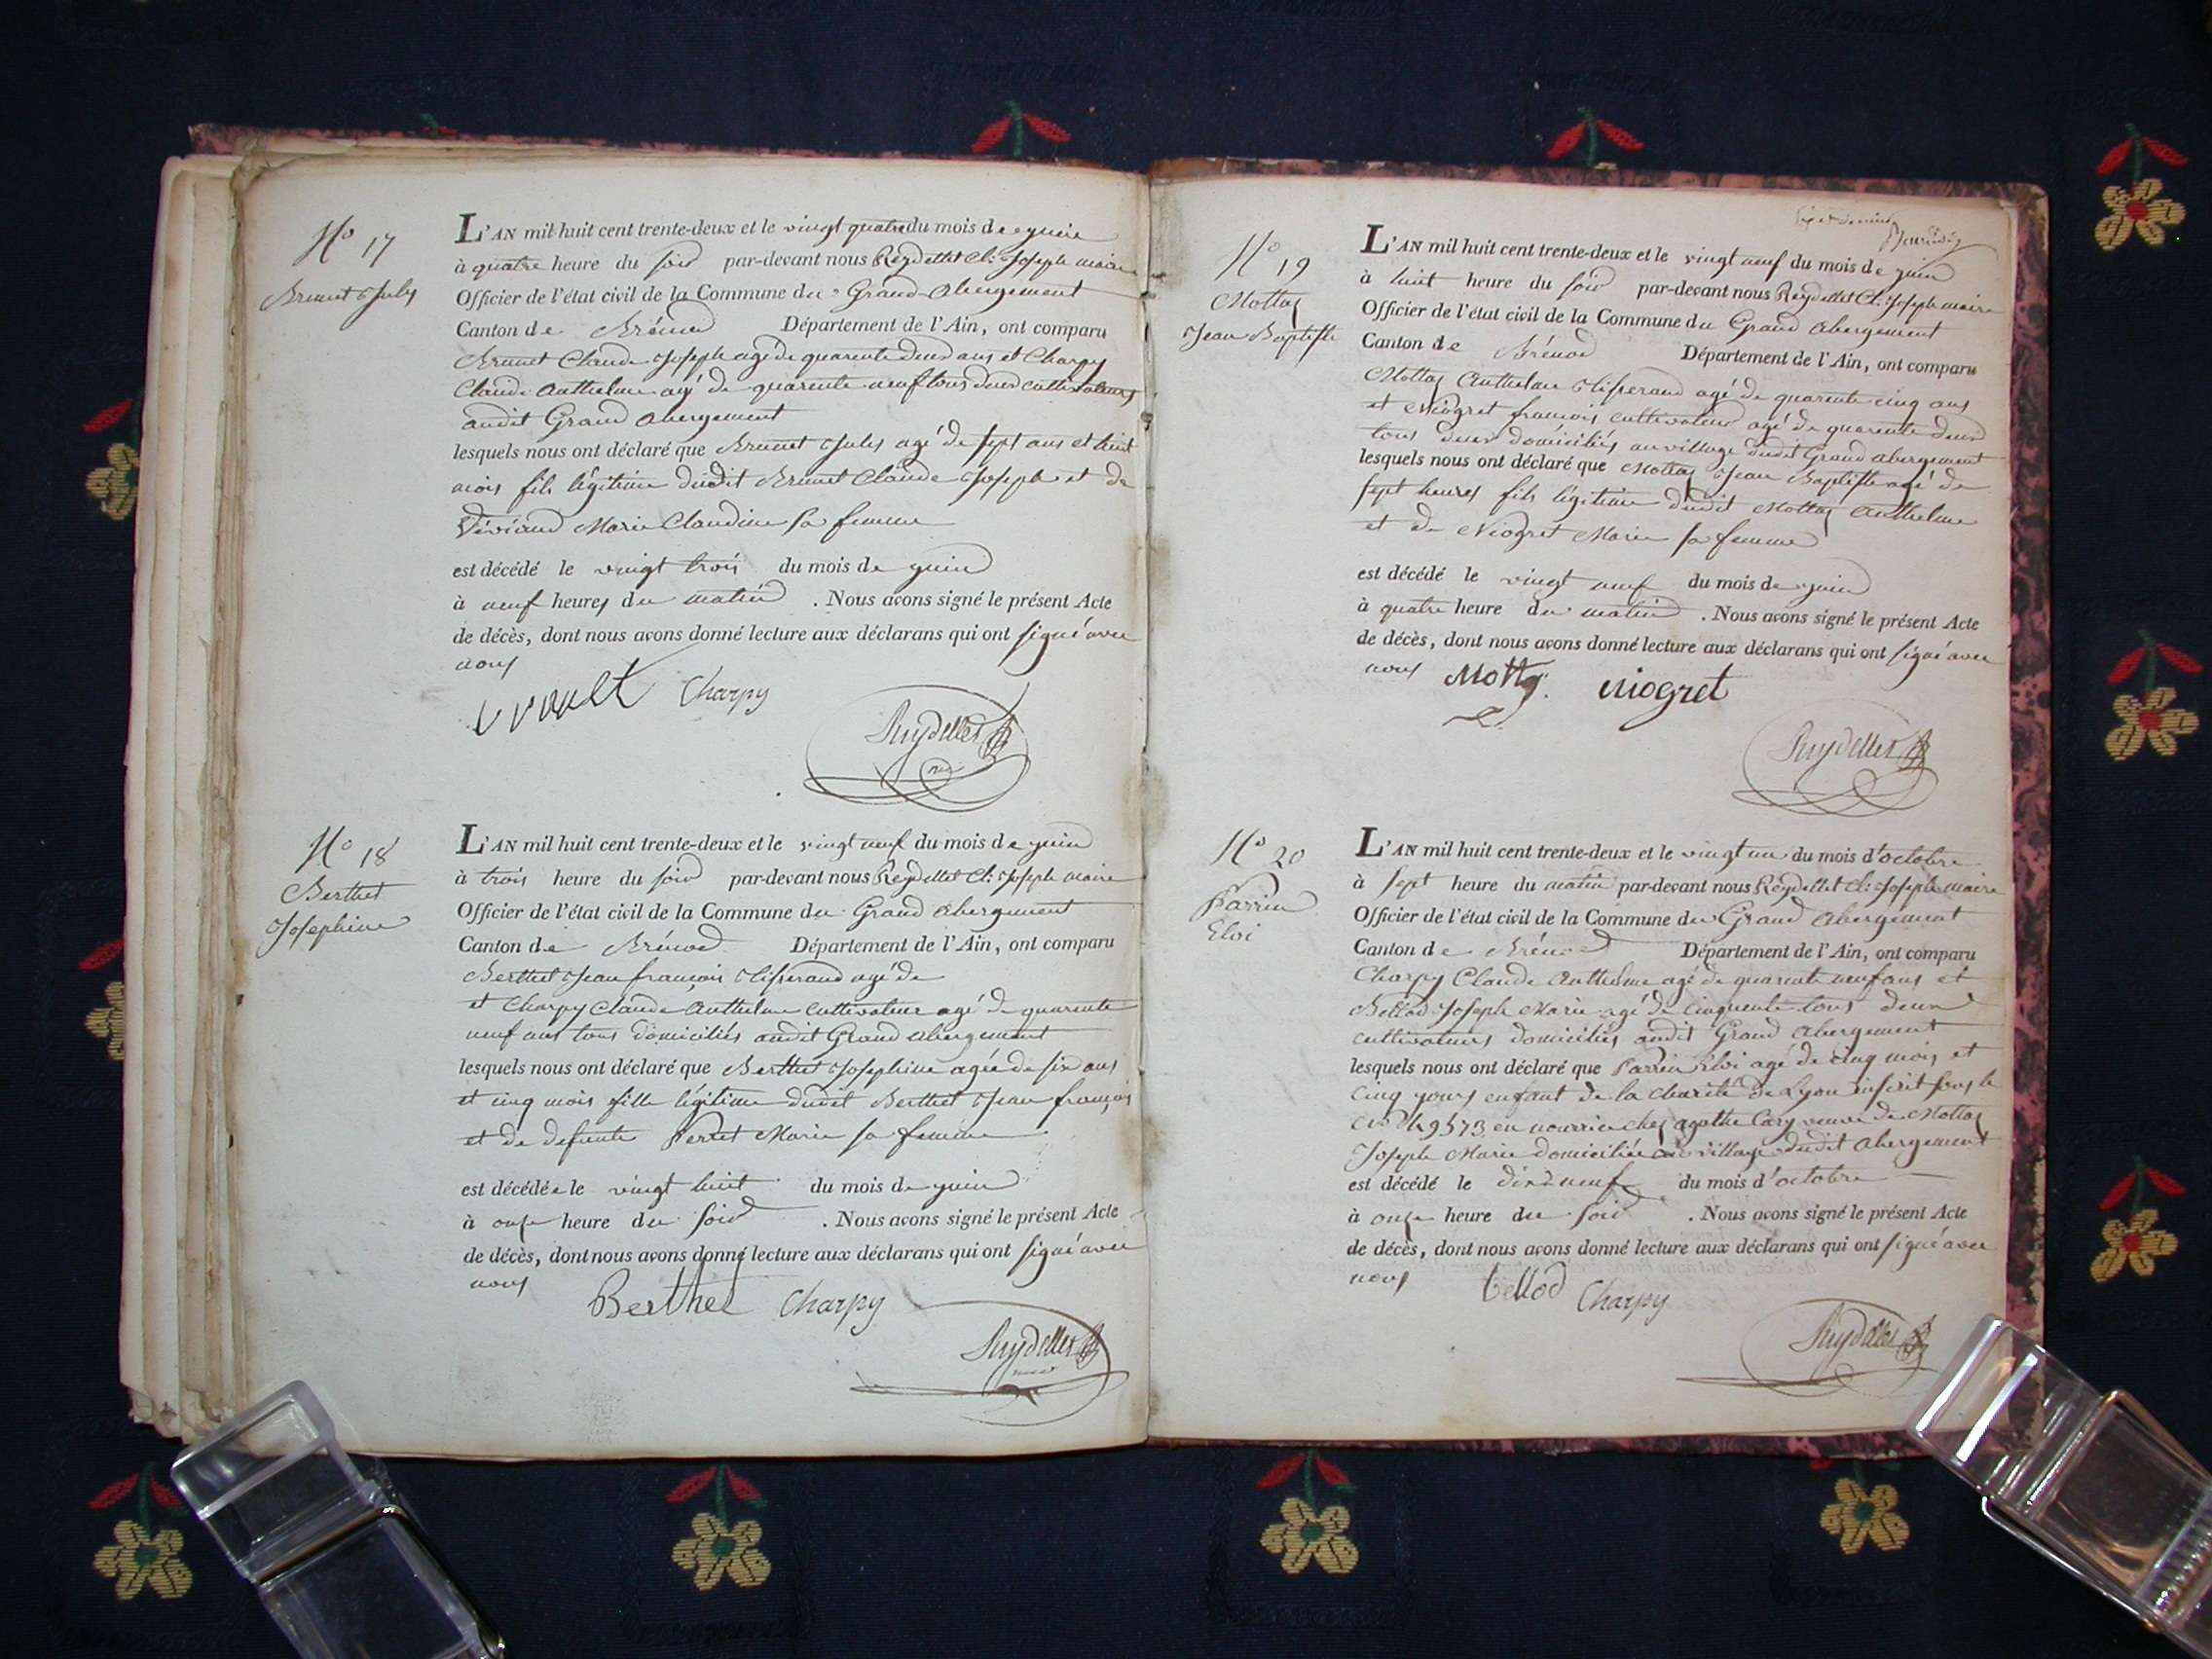 N° 17
Brunet Jules
L'AN mil huit cent trente-deux et le vingt quatre du mois de juin
à quatre heure du soir par-devant nous Reydellet Cl: Joseph maire
Officier de l'état civil de la Commune du Grand Abergement
Canton de Brénod Département de l'Ain, ont comparu
Brunet Claude Joseph agé de quarente deux ans et Charpy
Claude Anthelme agé de quarente neuf tous deux cultivateurs
audit Grand Abergement
lesquels nous ont déclaré que Brunet Jules agé de sept ans et huit
mois fils légitime dudit Brunet Claude Joseph et de
Marie Claudine sa femme
est décédé le vingt trois du mois de juin
à neuf heures du matin . Nous avons signé le présent Acte
de décès, dont nous avons donné lecture aux déclarans qui ont signé avec
nous
Charpy
Reydellet
N° 18
Berthet
Josephine
L'AN mil huit cent trente-deux et le vingt neuf du mois de juin
à trois heure du soir par-devant nous Reydellet Cl: Joseph maire
Officier de l'état civil de la Commune du Grand Abergement
Canton de Brénod Département de l'Ain, ont comparu
Berthet Jean françois tisserand agé de
et Charpy Claude Anthelme cultivateur agé de quarente
neuf ans tous domiciliés audit Grand Abergement
lesquels nous ont déclaré que Berthet Josephine agée de six ans
et cinq mois fille légitime dudit Berthet Jean françois
et de defunte Perret Marie sa femme
est décédée le vingt huit du mois de juin
à onze heure du soir . Nous avons signé le présent Acte
de décès, dont nous avons donné lecture aux déclarans qui ont signé avec
nous
Berthet Charpy
Reydellet
N° 19
Mottaz
Jean Baptiste
L'AN mil huit cent trente-deux et le vingt neuf du mois de juin
à huit heure du soir par-devant nous Reydellet Cl: Joseph maire
Officier de l'état civil de la Commune du Grand Abergement
Canton de Brénod Département de l'Ain, ont comparu
Mottaz Anthelme tisserand agé de quarente cinq ans
et Niogret françois cultivateur agé de quarente deux
tous deux domiciliés au village dudit Grand Abergement
lesquels nous ont déclaré que Mottaz Jean Baptiste agé de
sept heures fils légitime dudit Mottaz Anthelme
et de Niogret Marie sa femme
est décédé le vingt neuf du mois de juin
à quatre heure du matin . Nous avons signé le présent Acte
de décès, dont nous avons donné lecture aux déclarans qui ont signé avec
nous
Mottaz niogret
Reydellet
N° 20
Parrin
Eloi
L'AN mil huit cent trente-deux et le vingt un du mois d'octobre
à sept heure du matin par-devant nous Reydellet Cl: Joseph maire
Officier de l'état civil de la Commune du Grand Abergement
Canton de Brénod Département de l'Ain, ont comparu
Charpy Claude Anthelme agé de quarente neuf ans et
Bellod Joseph Marie agé de cinquente tous deux
cultivateurs domiciliés audit Grand Abergement
lesquels nous ont déclaré que Parrin Eloi agé de cinq mois et
cinq jours enfant de la Charité de Lyon inscrit sous le
N° 49573 en nourrice chez Agathe Cary veuve de Mottaz
Joseph Marie domiciliée au village dudit Abergement
est décédé le dix neuf du mois d'octobre
à onze heure du soir . Nous avons signé le présent Acte
de décès, dont nous avons donné lecture aux déclarans qui ont signé avec
nous
bellod Charpy
Reydellet